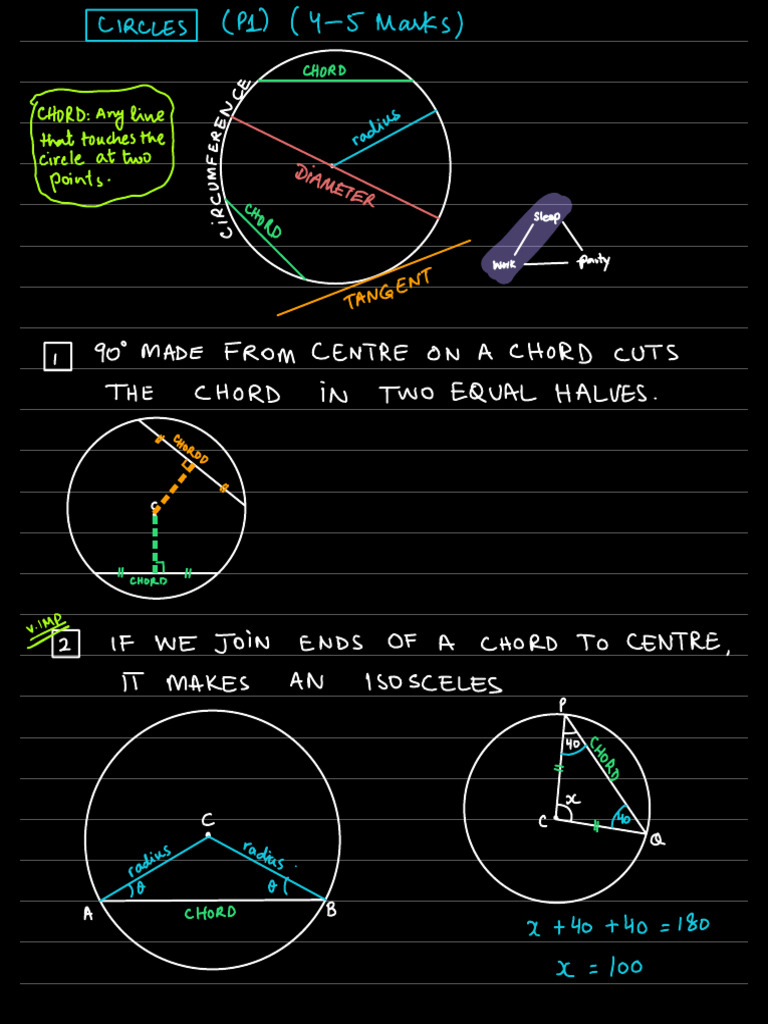 CIRCLES (P1) (4-5 Marks)
CHORD: Any line
that touches the
circle at two
points.
CIRCUMFERENCE
CHORD
radius
DIAMETER
CHORD
TANGENT
sleep
work
party
1 90° MADE FROM CENTRE ON A CHORD CUTS
THE CHORD IN TWO EQUAL HALVES.
CHORDD
C
CHORD
V.IMP
2 IF WE JOIN ENDS OF A CHORD TO CENTRE,
IT MAKES AN ISOSCELES
C
radius
radius.
θ
θ
A
B
CHORD
P
40
CHORD
x
C
40
Q
x + 40 + 40 = 180
x = 100